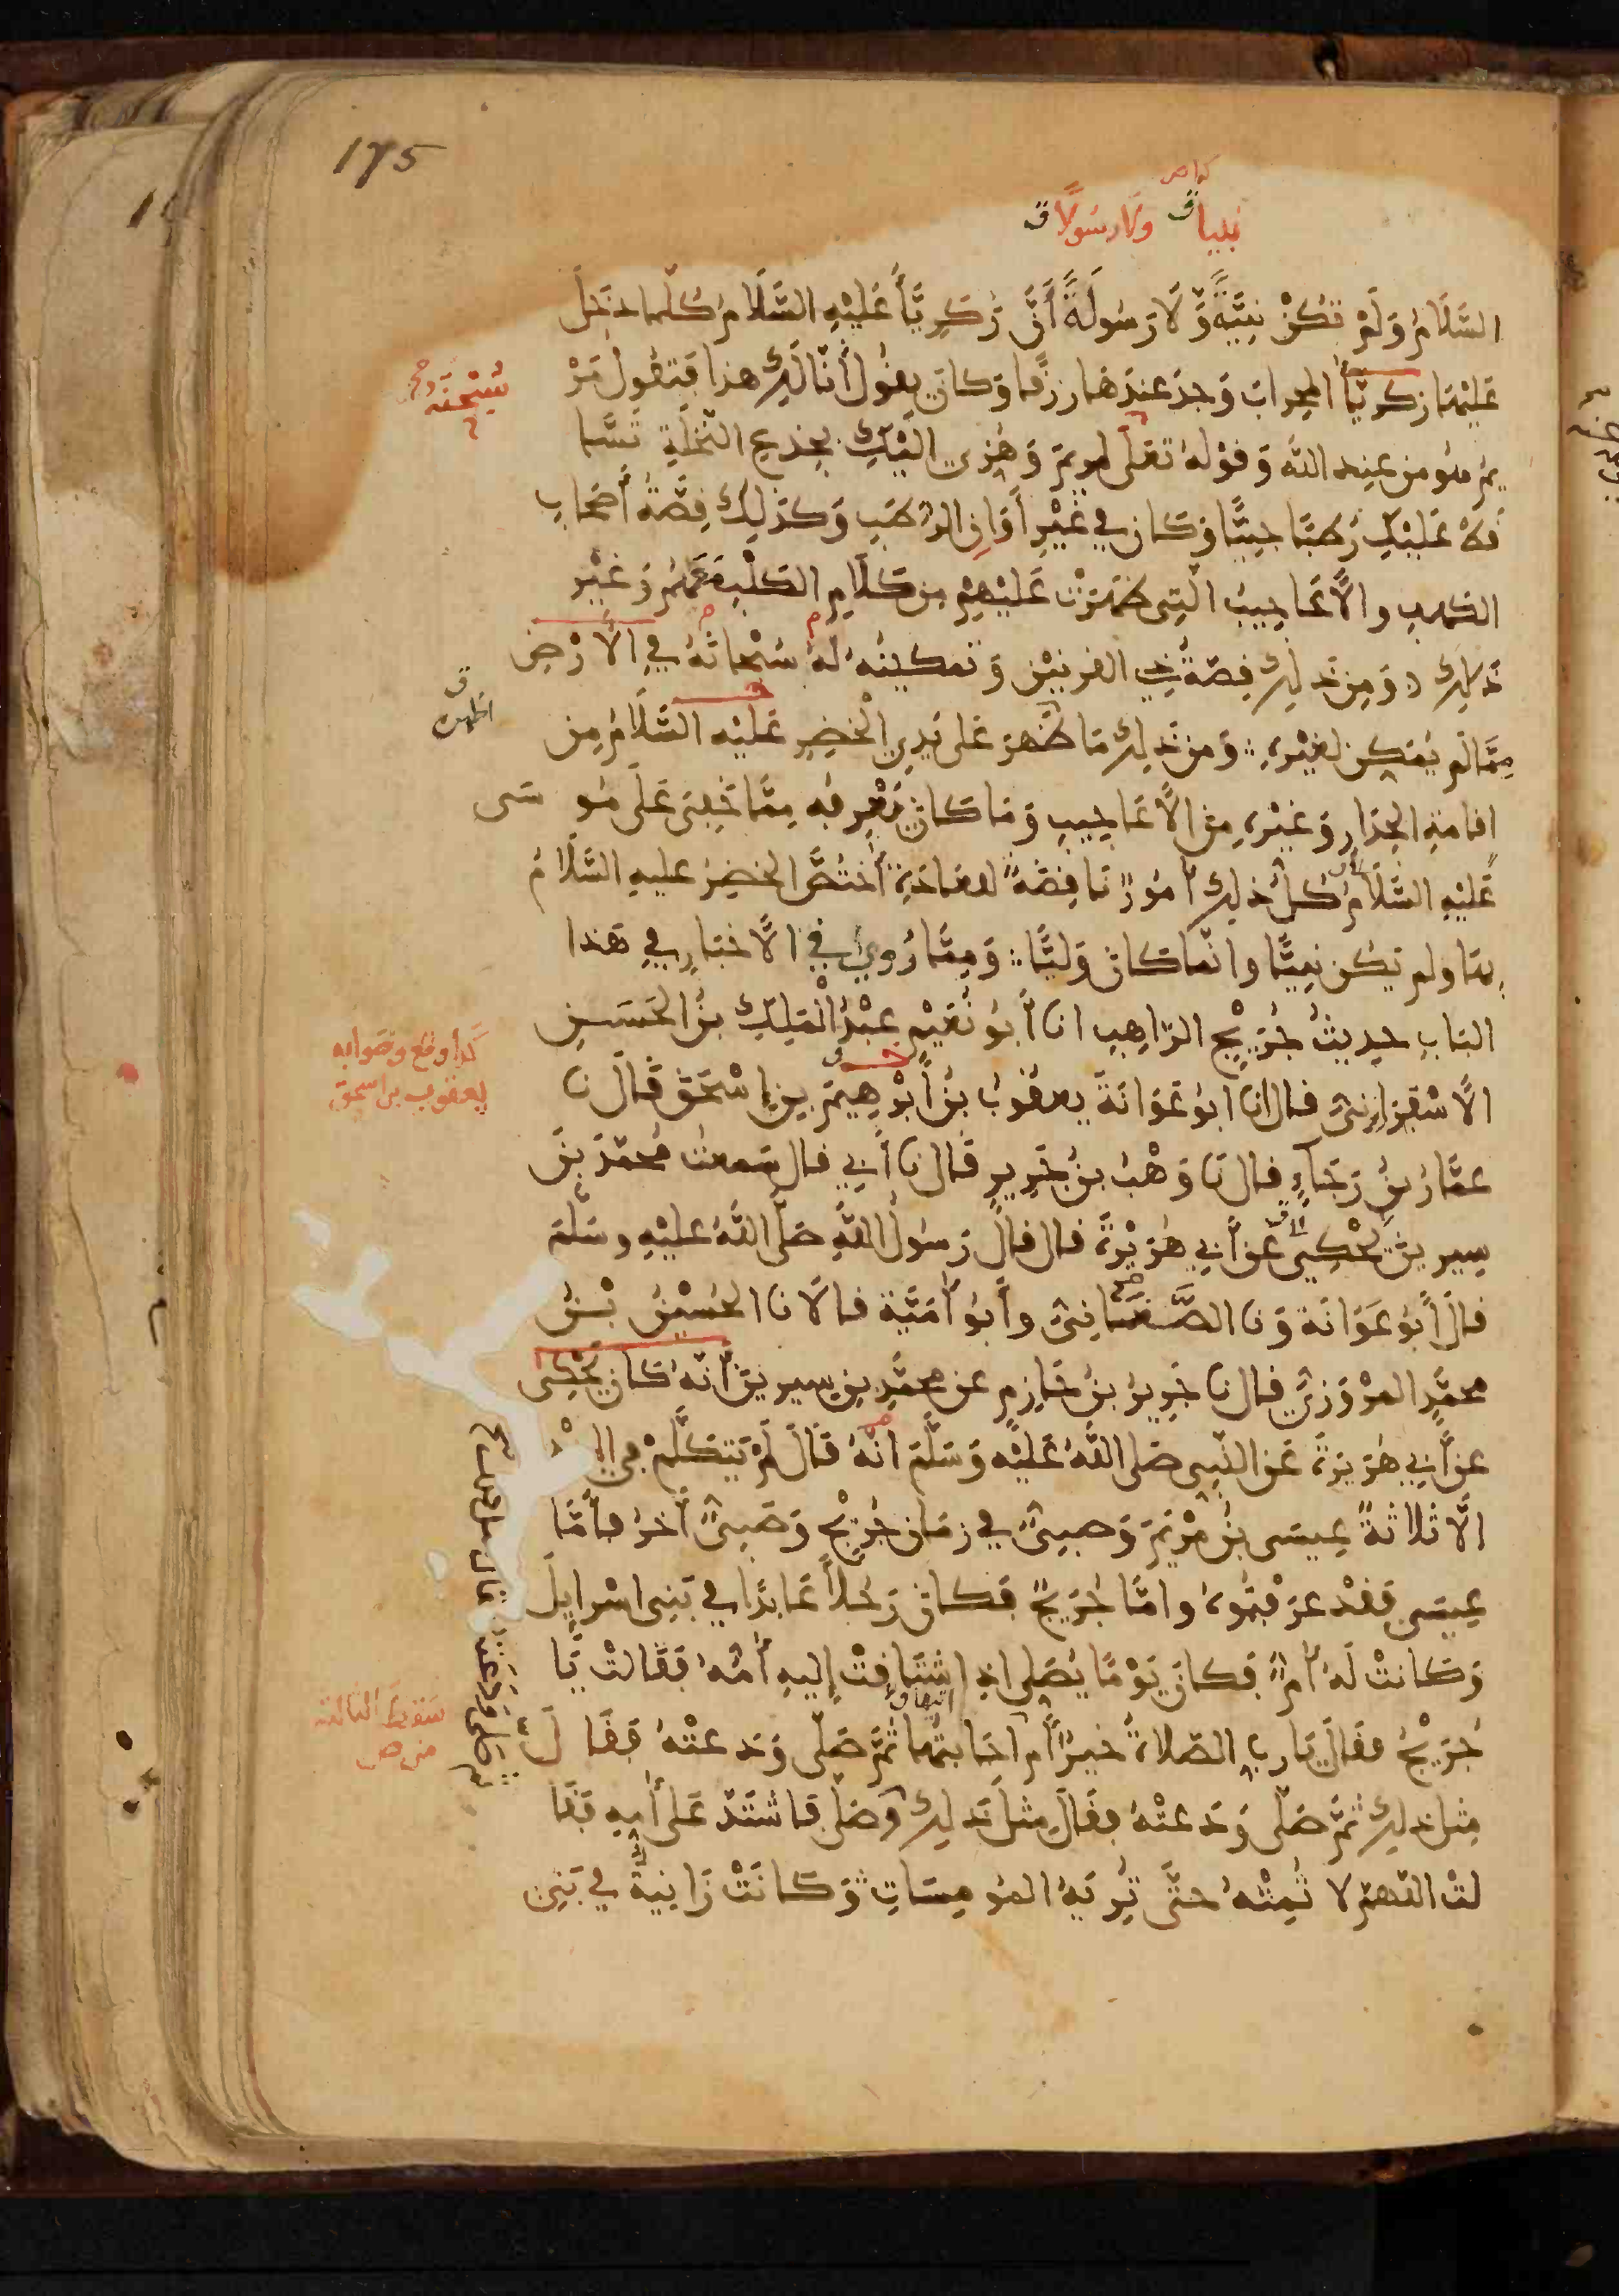 175
كذا ص
نبيا ق ولا رسولا ق
السَّلَامُ وَلَمْ تَكُنْ نبيَّةً وَّلَا رَسُولَةً أَنَّ زَكَرِيَّاً عَلَيْهِ السَّلَامُ كُلَّما دَخَلَ
عَلَيْهَا زكريَّاً المحرابَ وَجدَ عندَها رزقًا وَكانَ يقول أنّا لَكِ هذا فتقول مَرْ
سُبْحَنَهُ
يمُ هُو من عِند الله وَقوْلهُ تعلى لمريمَ وَهُزي اليْكِ بجذعِ النخلةِ تسَّا
قطْ عَلَيْكِ رُطَبًا جنيًّا وَكانَ في غَيْرِ أَوَانِ الرُّطَبِ وَكذلِكَ قصَّةُ أصْحابِ
الكهفِ والأَعَاجيبُ الّتِى ظهَرَتْ عَلَيْهِمْ مِن كَلَامِ الكلْبِ مَعَهُمْ وَغَيْر
ذَلِكَ وَمِن ذَلِكَ قِصّةُ ذِي القرنيْنِ وَتمكينُهُ لَهُ سُبْحانَهُ فِي الأَرْضِ
ق
اظهره
مِمَّا لَم يُمَكِن لغيْرِهِ وَمن ذَلِكَ مَا ظهرَ عَلى يَدِي الْخضِرِ عَلَيْه السَّلَامُ مِن
اقامةِ الجِدَارِ وَغيْرِهِ مِنَ الأَعَاجيبِ وَمَا كانَ يَعْرِفُه مِمَّا خَفِىَ عَلَى مُو سَى
عَلَيْهِ السَّلَامُ كلُّ ذلِكَ أمُورٌ نَاقضَةٌ لِلعَادَةِ أختُصَّ الخضِرُ عليهِ السَّلامُ
بهَا ولم يَكُن نبِيًّا وانّما كانَ وَليًّا وَمِمَّا رُويَ في الأخبَارِ في هَذا
البَابِ حدِيثُ جُرَيْجٍ الرّاهِبِ انا أبُو نُعَيْمٍ عبْدُ الْمَلِكِ بنُ الحَسَنِ
كذا وقع وصوابه
يعقوب بن اسحق
الأسْفَرَايِنيُّ قال انا ابو عَوَانَةَ يعقُوبُ بنُ إبْرَهِيمَ بنِ إسْحَقَ قَالَ نا
عمَّارُ بنُ رَجَاءٍ قال نَا وَهْبُ بنُ جَرِيرٍ قَالَ نا أبِي قال سَمعتُ محَمّدَ بنَ
سِيرينَ يَحْكِى عن أبِي هُرَيْرَةَ قال قالَ رَسُولُ اللَّهِ صَلَّى اللَّهُ عليْهِ وسَلَّمَ
قالَ أبُو عَوَانَةَ وَنا الصَّغَانِيُّ وأبُو أمَيَّةَ قالَا نا الحُسَيْنُ بْنُ
محمّدٍ المرْوَزيُّ قال نا جَرِيرُ بنُ حَازِمٍ عن محمّدِ بنِ سِيرينَ أنّهُ كانَ يَحْكِى
عن أبِي هُرَيْرَةَ عَن النّبِى صَلى اللَّهُ عَلَيْه وَسَلَّمَ انّهُ قَالَ لَمْ يَتكلّمْ في
الّا ثلاثةٌ عِيسَى بنُ مَرْيَمَ وَصَبِيٌّ في زمَانِ جُرَيْجٍ وَصَبِيٌّ آخرُ فأمّا
عِيسَى فقدْ عرَفتُمُوهُ وامّا جُرَيْجٌ فكانَ رَجُلًا عَابدًا في بَنِى اسْرايلَ
وَكَانتْ لَهُ أمٌّ فكانَ يَوْمًا يُصَلِى اذِ اشْتَاقتْ إليهِ أمُّهُ فقَالتْ يَا
سَقطَ الثالثة
من ص
جُرَيْجُ فقَالَ يَا ربِّ الصّلاةُ خيرٌ أمْ اجَابتُهَا ثمَّ صَلّى وَدَعتْهُ فقَا لَ
مِثل ذلِكَ ثمَّ صَلّى وَدَعتْهُ فقَالَ مِثلَ ذَلِكَ وَصَلّى فاشتَدّ عَلى أمِهِ فقَا
لتْ اللّهمّ لا تُمِتْهُ حتَّى تُرِيَهُ المُومِسَاتِ وَكانَتْ زَانِيَةٌ في بَنِى